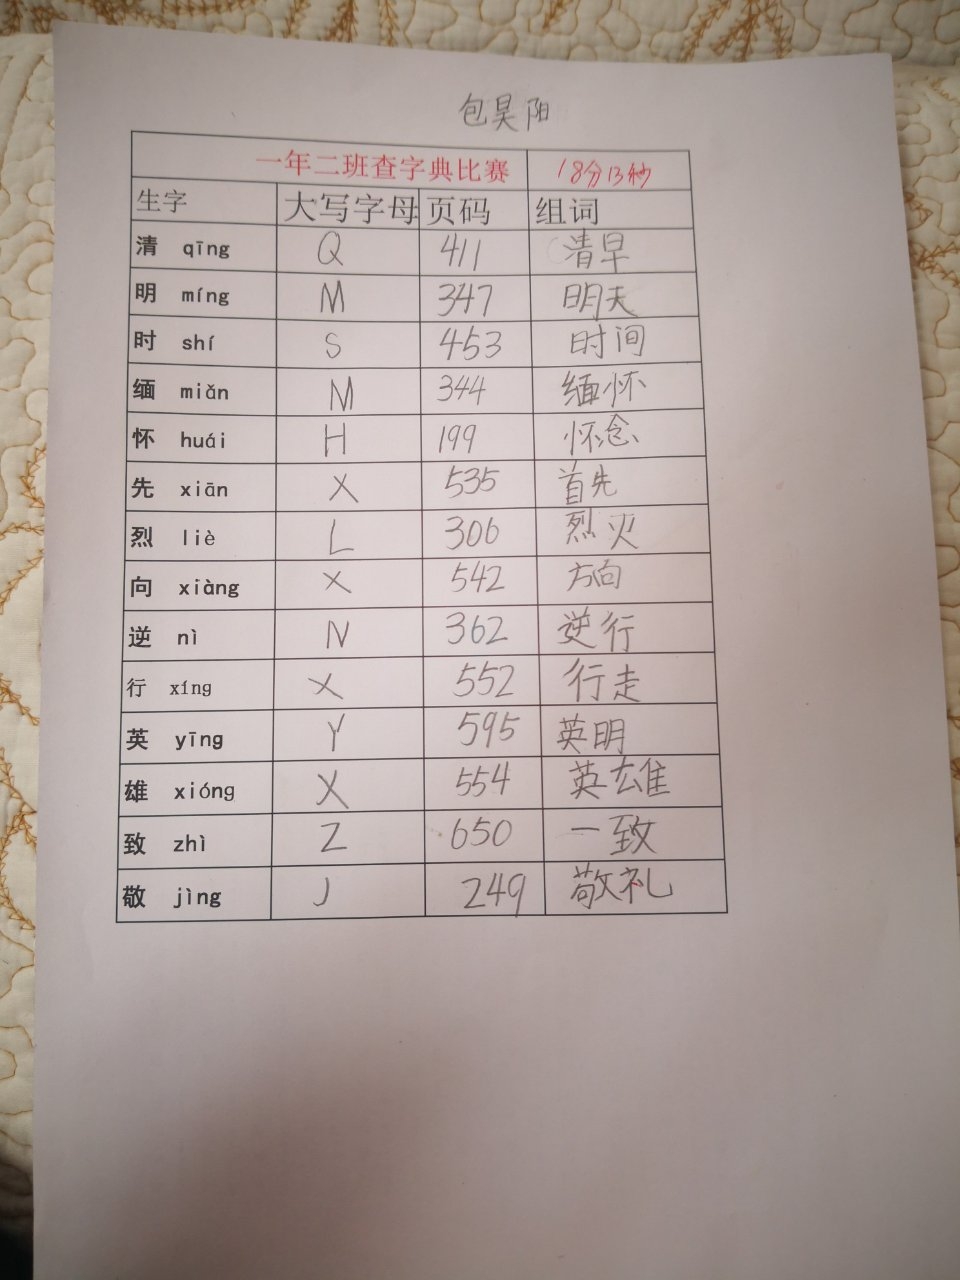 包昊阳
一年二班查字典比赛 18分13秒
生字 大写字母 页码 组词
清 qīng Q 411 清早
明 míng M 347 明天
时 shí S 453 时间
缅 miǎn M 344 缅怀
怀 huái H 199 怀念
先 xiān X 535 首先
烈 liè L 306 烈火
向 xiàng X 542 方向
逆 nì N 362 逆行
行 xíng X 552 行走
英 yīng Y 595 英明
雄 xióng X 554 英雄
致 zhì Z 650 一致
敬 jìng J 249 敬礼